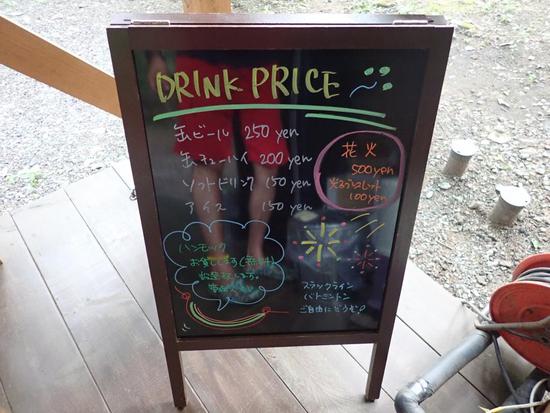 DRINK PRICE
缶ビール 250 yen
缶チューハイ 200 yen
ソフトドリンク 150 yen
アイス 150 yen
花火
500yen
100yen
ハンモック
お貸しします(無料)
スラックライン
バドミントン
ご自由にどうぞ♪